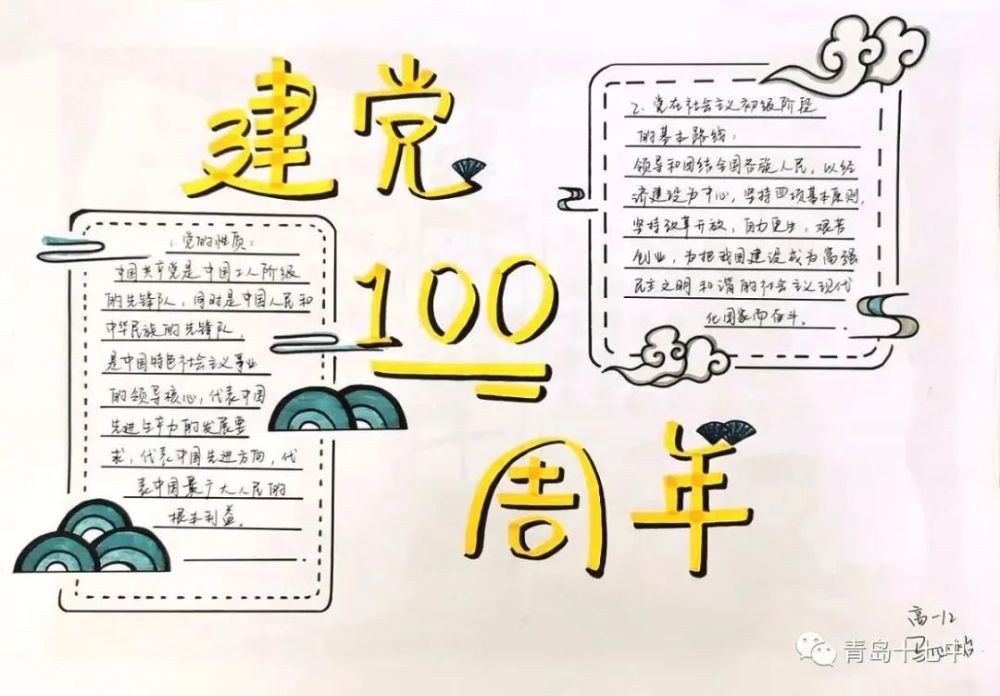 建党
100
周年
1.党的性质:
中国共产党是中国工人阶级
的先锋队,同时是中国人民和
中华民族的先锋队,
是中国特色社会主义事业
的领导核心,代表中国
先进生产力的发展要
求,代表中国先进方向,代
表中国最广大人民的
根本利益。
2.党在社会主义初级阶段
的基本路线:
领导和团结全国各族人民,以经
济建设为中心,坚持四项基本原则,
坚持改革开放,自力更生,艰苦
创业,为把我国建设成为富强
民主文明和谐的社会主义现代
化国家而奋斗。
高一12
青岛十七中